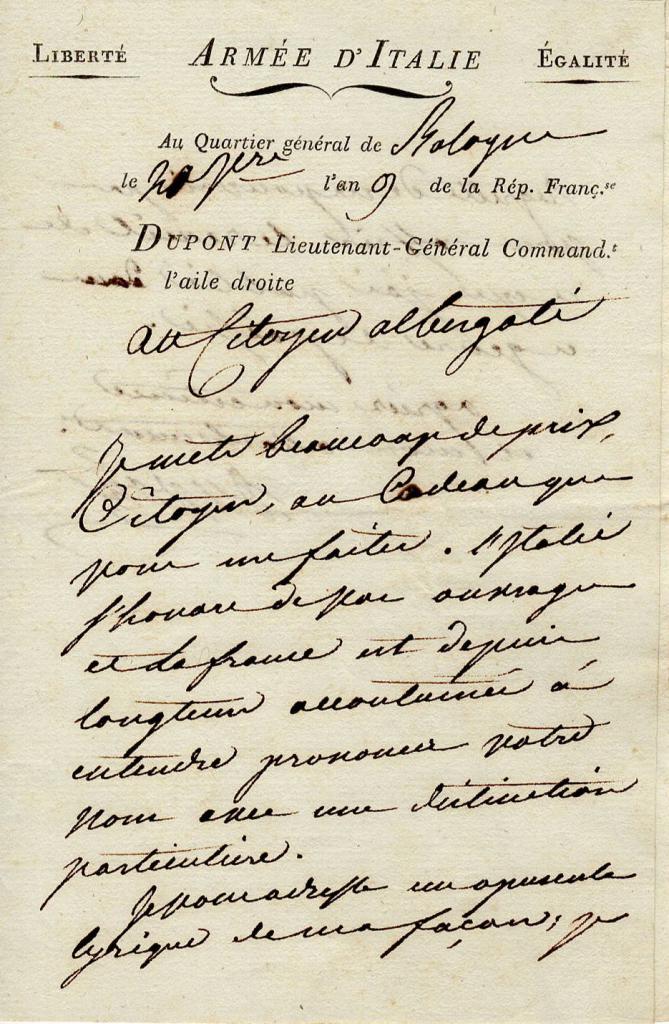 LIBERTÉ ARMÉE D'ITALIE ÉGALITÉ
Au Quartier général de Bologne
le l'an 9 de la Rép. Franç.se
DUPONT Lieutenant-Général Command.t
l'aile droite
au Citoyen albergati
Je mets beaucoup de prix,
Citoyen, au Cadeau que
vous me faites. l'Italie
s'honore de vos ouvrages
et la france est depuis
longtems accoutumée à
entendre prononcer votre
nom avec une distinction
particuliere.
Je vous adresse un opuscule
lyrique de ma façon; je